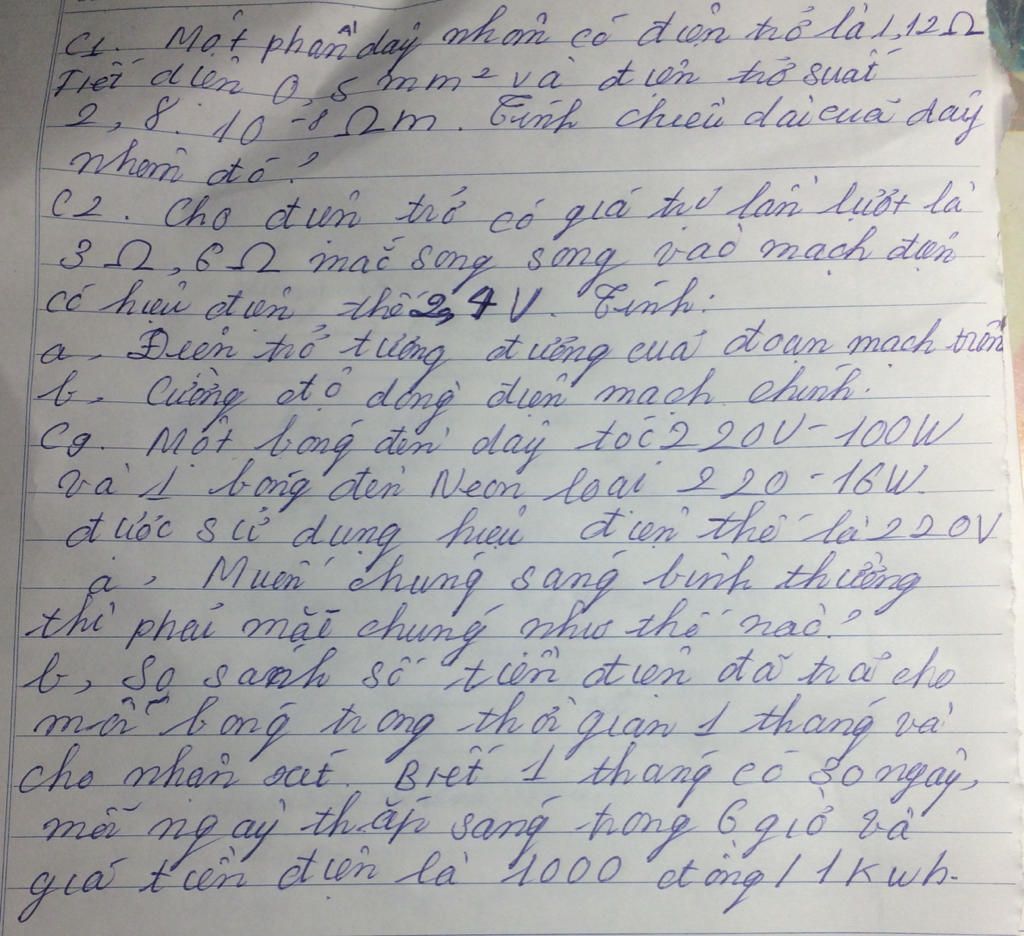 C1. Một phần dây nhôm có điện trở là 1,12Ω
Tiết diện 0,5 mm² và điện trở suất
2,8.10⁻⁸ Ωm. Tính chiều dài của dây
nhôm đó?
C2. Cho điện trở có giá trị lần lượt là
3Ω, 6Ω mắc song song vào mạch điện
có hiệu điện thế 2,4V. Tính:
a, Điện trở tương đương của đoạn mạch trên
b, Cường độ dòng điện mạch chính.
C3. Một bóng đèn dây tóc 220V-100W
và 1 bóng đèn Neon loại 220-16W
được sử dụng hiệu điện thế là 220V
a, Muốn chúng sáng bình thường
thì phải mắc chúng như thế nào?
b, So sánh số tiền điện đã trả cho
mỗi bóng trong thời gian 1 tháng và
cho nhận xét. Biết 1 tháng có 30 ngày,
mỗi ngày thắp sáng trong 6 giờ và
giá tiền điện là 1000 đồng/1Kwh.